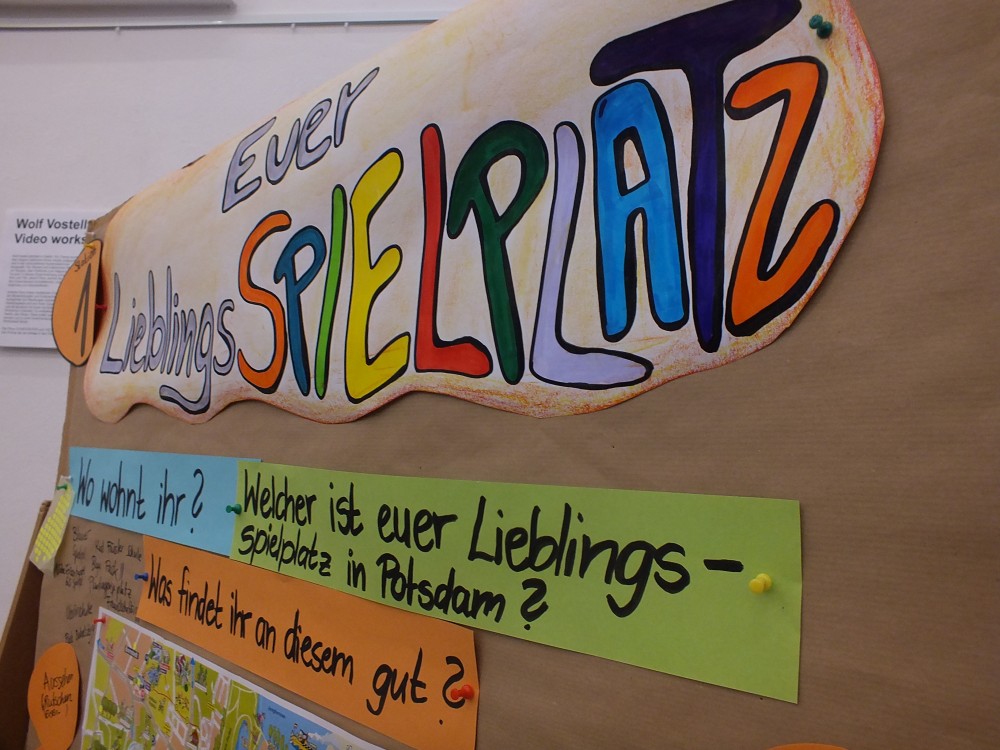 Wolf Vostell
Video works
1
Euer
Lieblings SPIELPLATZ
Wo wohnt ihr?
Welcher ist euer Lieblings-
spielplatz in Potsdam?
Was findet ihr an diesem gut?